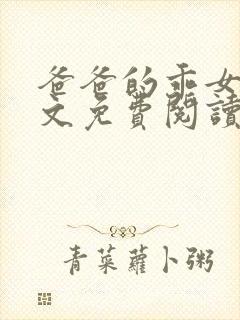 爸爸的乖女
文免費閱讀
青菜蘿卜粥